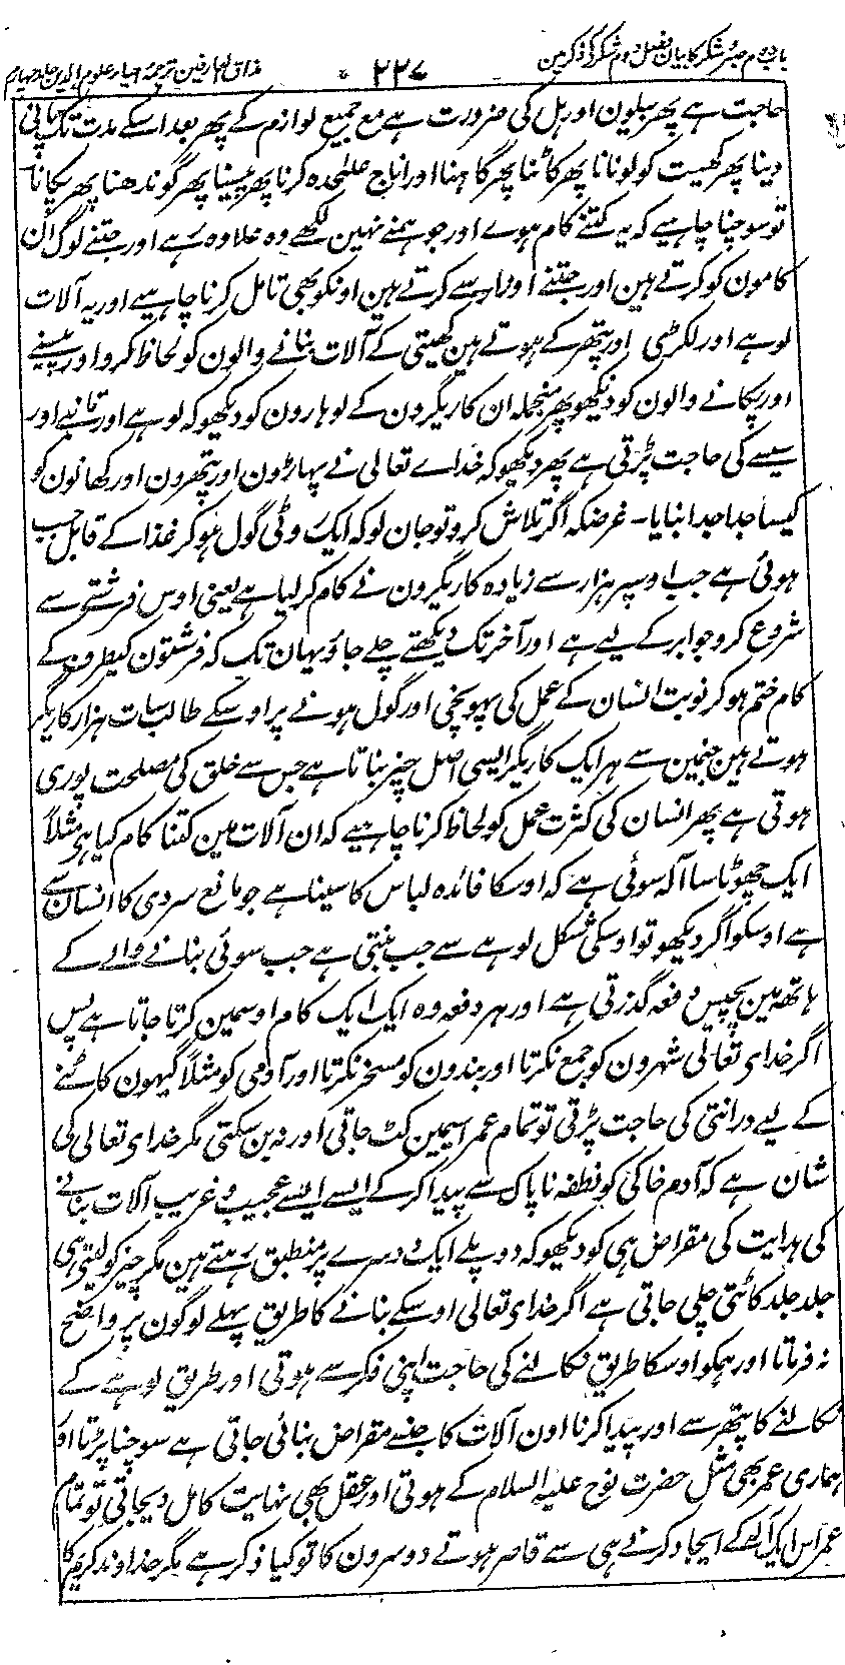 باب دوم صبر و شکر کا بیان فصل دوم شکر کے ذکر مین
۲۲۷
مذاق العارفین ترجمۂ احیاء علوم الدین جلد چہارم
حاجت ہے پھر بیلون اور ہل کی ضرورت ہے مع جمیع لوازم کے پھر بعد اسکے مدت تک پانی
دینا پھر کھیت کو لونانا پھر کاٹنا پھر گاہنا اور اناج علٰحدہ کرنا پھر پیسنا پھر گوندھنا پھر پکانا
تو سوچنا چاہیے کہ یہ کتنے کام ہوے اور جو ہمنے نہین لکھے وہ علاوہ رہے اور جتنے لوگ ان
کامون کو کرتے ہین اور جتنے اوزار سے کرتے ہین اونکو بھی تامل کرنا چاہیے اور یہ آلات
لوہے اور لکڑی اور پتھر کے ہوتے ہین کھیتی کے آلات بنانے والون کو لحاظ کرو اور پیسنے
اور پکانے والون کو دیکھو پھر منجملہ ان کاریگرون کے لوہارون کو دیکھو کہ لوہے اور تانبے اور
سیسے کی حاجت پڑتی ہے پھر دیکھو کہ خداے تعالی نے پہاڑون اور پتھرون اور کھانون کو
کیسا جدا جدا بنایا۔ غرضکہ اگر تلاش کرو تو جان لو کہ ایک روٹی گول ہو کر غذا کے قابل جب
ہوئی ہے جب اوسپر ہزار سے زیادہ کاریگرون نے کام کر لیا ہے یعنی اوس فرشتے سے
شروع کرو جو ابر کے لیے ہے اور آخر تک دیکھتے چلے جاؤ یہان تک کہ فرشتون کیطرف کے
کام ختم ہو کر نوبت انسان کے عمل کی پہونچی اور گول ہونے پر اوسکے طالب سات ہزار کاریگر
ہوتے ہین جنمین سے ہر ایک کاریگر ایسی اصل چیز بناتا ہے جس سے خلق کی مصلحت پوری
ہوتی ہے پھر انسان کی کثرت عمل کو لحاظ کرنا چاہیے کہ ان آلات مین کتنا کام کیا ہی مثلاً
ایک چھوٹا سا آلہ سوئی ہے کہ اوسکا فائدہ لباس کا سینا ہے جو مانع سردی کا انسان سے
ہے اوسکو اگر دیکھو تو اوسکی شکل لوہے سے جب بنتی ہے جب سوئی بنانے والے کے
ہاتھ مین پچیس دفعہ گذرتی ہے اور ہر دفعہ وہ ایک ایک کام اوسمین کرتا جاتا ہے پس
اگر خدای تعالی شہرون کو جمع نکرتا اور بندون کو مسخر نکرتا اور آدمی کو مثلاً گیہون کاٹنے
کے لیے درانتی کی حاجت پڑتی تو تمام عمر اسیمین کٹ جاتی اور نہ بن سکتی مگر خدای تعالی کی
شان ہے کہ آدم خاکی کو نطفہ ناپاک سے پیدا کر کے ایسے ایسے عجیب و غریب آلات بنانے
کی ہدایت کی مقراض ہی کو دیکھو کہ دو پلے ایک دوسرے پر منطبق رہتے ہین مگر چیز کو لیتی ہی
جلد جلد کاٹتی چلی جاتی ہے اگر خدای تعالی اوسکے بنانے کا طریق پہلے لوگون پر واضح
نہ فرماتا اور ہمکو اوسکا طریق نکالنے کی حاجت اپنی فکر سے ہوتی اور طریق لوہے کے
نکالنے کا پتھر سے اور پیدا کرنا اون آلات کا جنسے مقراض بنائی جاتی ہے سوچنا پڑتا اور
ہماری عمر بھی مثل حضرت نوح علیہ السلام کے ہوتی اور عقل بھی نہایت کامل دیجاتی تو تمام
عمر اس ایک آلہ کے ایجاد کرنے ہی سے قاصر ہوتے دوسرون کا تو کیا ذکر ہے مگر خداوند کریم کا